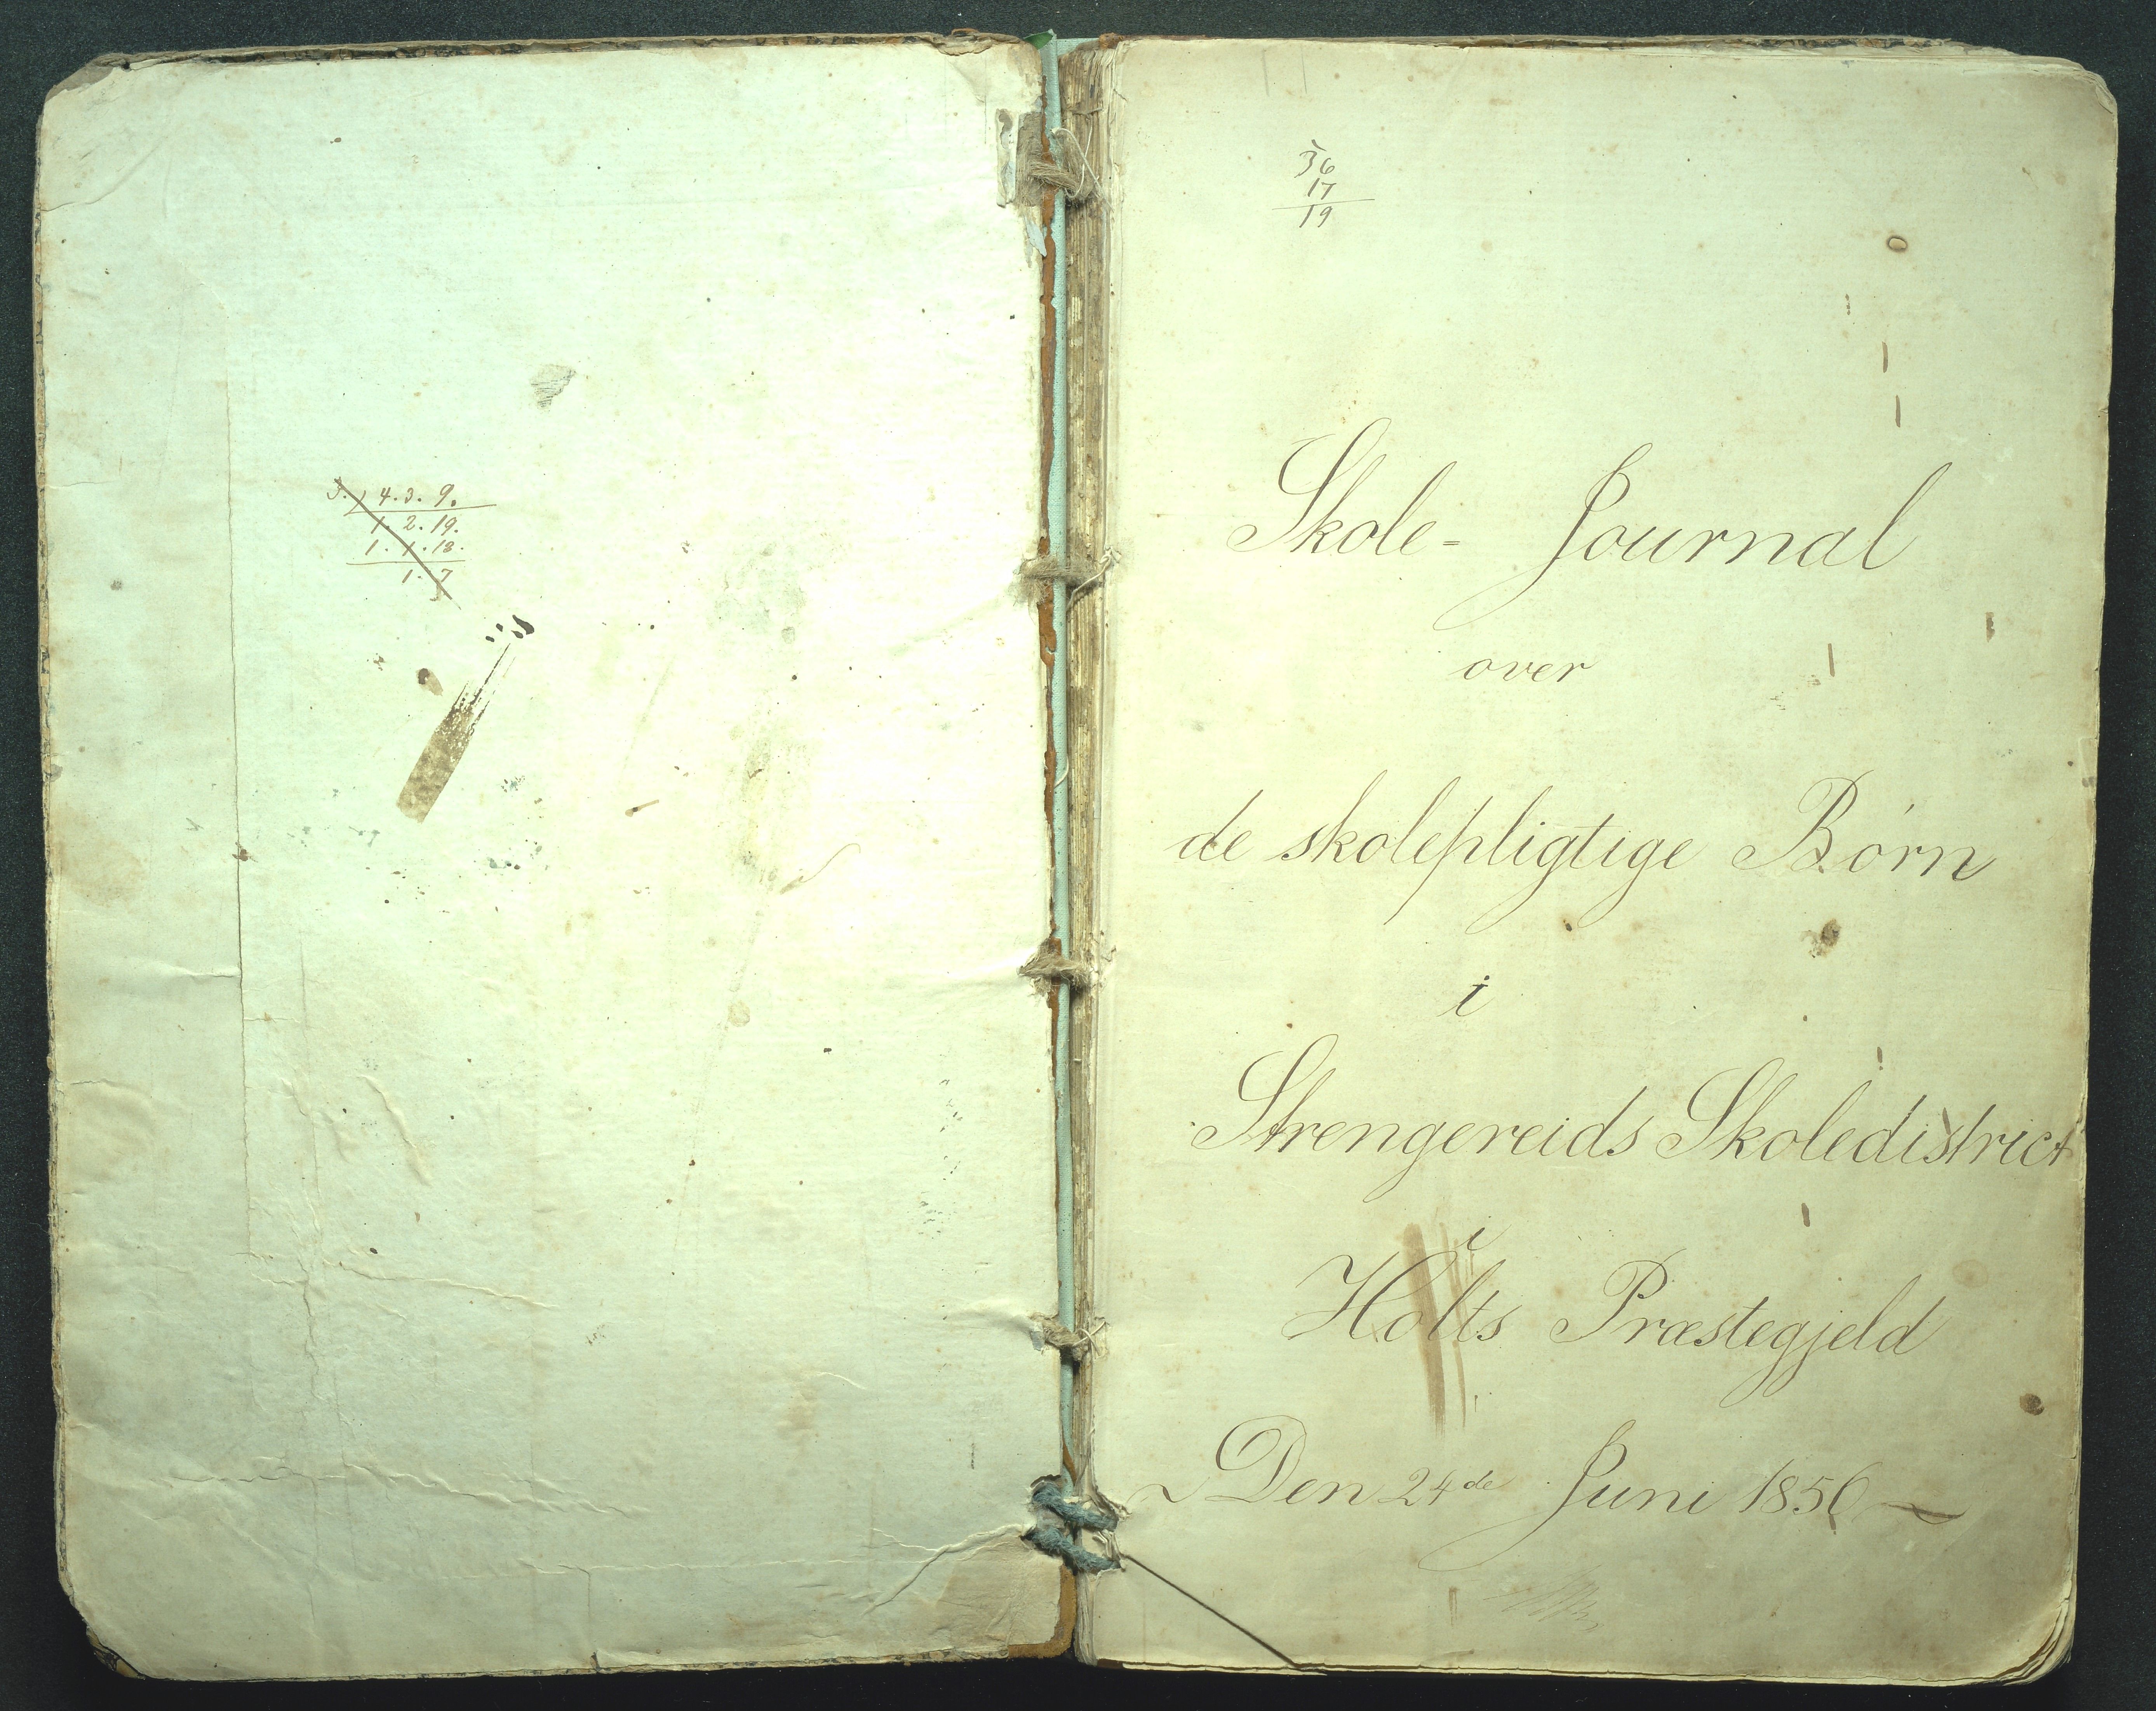 3. ) 4. 3. 9.
1. 2. 19.
1. 1. 18.
1. 7
36
17
19
Skole- Journal
over
de skolepligtige Børn
i
Strengereids Skoledistrict
i
Holts Præstegjeld
Den 24de Juni 1856